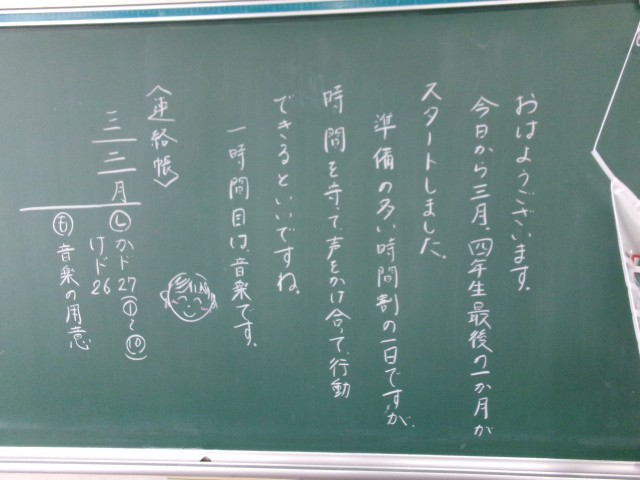 おはようございます。
今日から三月。四年生最後の一か月が
スタートしました。
準備の多い時間割の一日ですが、
時間を守って、声をかけ合って、行動
できるといいですね。
一時間目は、音楽です。
〈連絡帳〉
三三月
し かド27(①~⑩)
けド26
も 音楽の用意